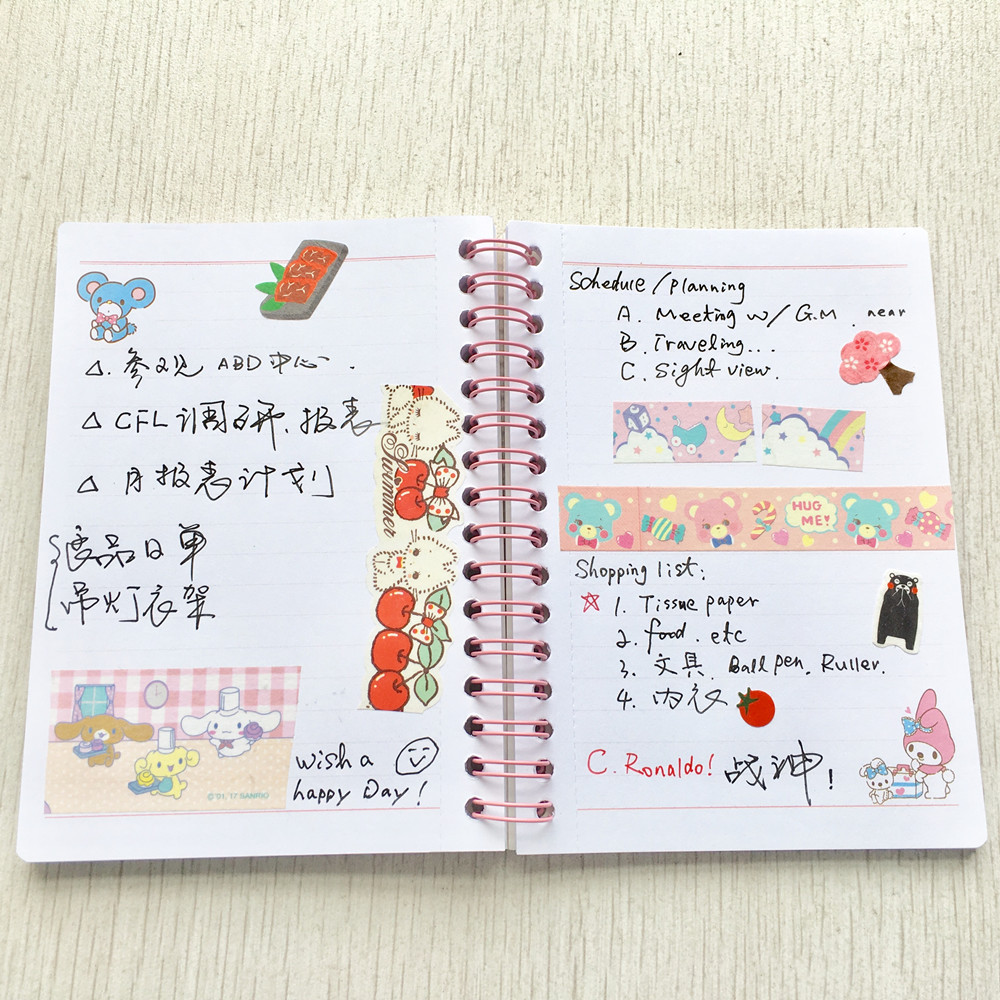 △. 参观 ABD 中心.
△ CFL 调研、报表
△ 月报表计划
品日单
吊灯衣架
Summer
©'01,'17 SANRIO
wish a
happy Day!
Schedule/planning
A. Meeting w/ G.M. near
B. Traveling...
C. Sight view.
HUG
ME!
Shopping list:
☆ 1. Tissue paper
2. food. etc
3. 文具. Ball pen. Ruller.
4. 内衣
C. Ronaldo! 战神!